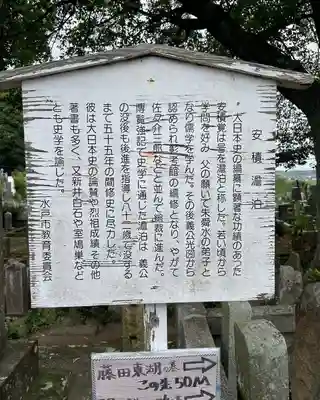 安積澹泊
大日本史の編纂に顕著な功績のあった
安積覚は号を澹泊と称した。若い頃から
学問を好み、父の願いで朱舜水の弟子と
なり儒学を学んだ。その後義公光圀から
認められ彰考館の編修となり、やがて
佐々介三郎などと並んで総裁に進んだ。
博覧強記で史学に通じた澹泊は、義公
の没後も後進を指導し八十二歳で没する
まで五十五年の間修史に尽力した。
彼は大日本史の論賛や烈祖成績その他
著書も多く、又新井白石や室鳩巣など
とも史学を論じた。
水戸市教育委員会
藤田東湖の墓
この先50M